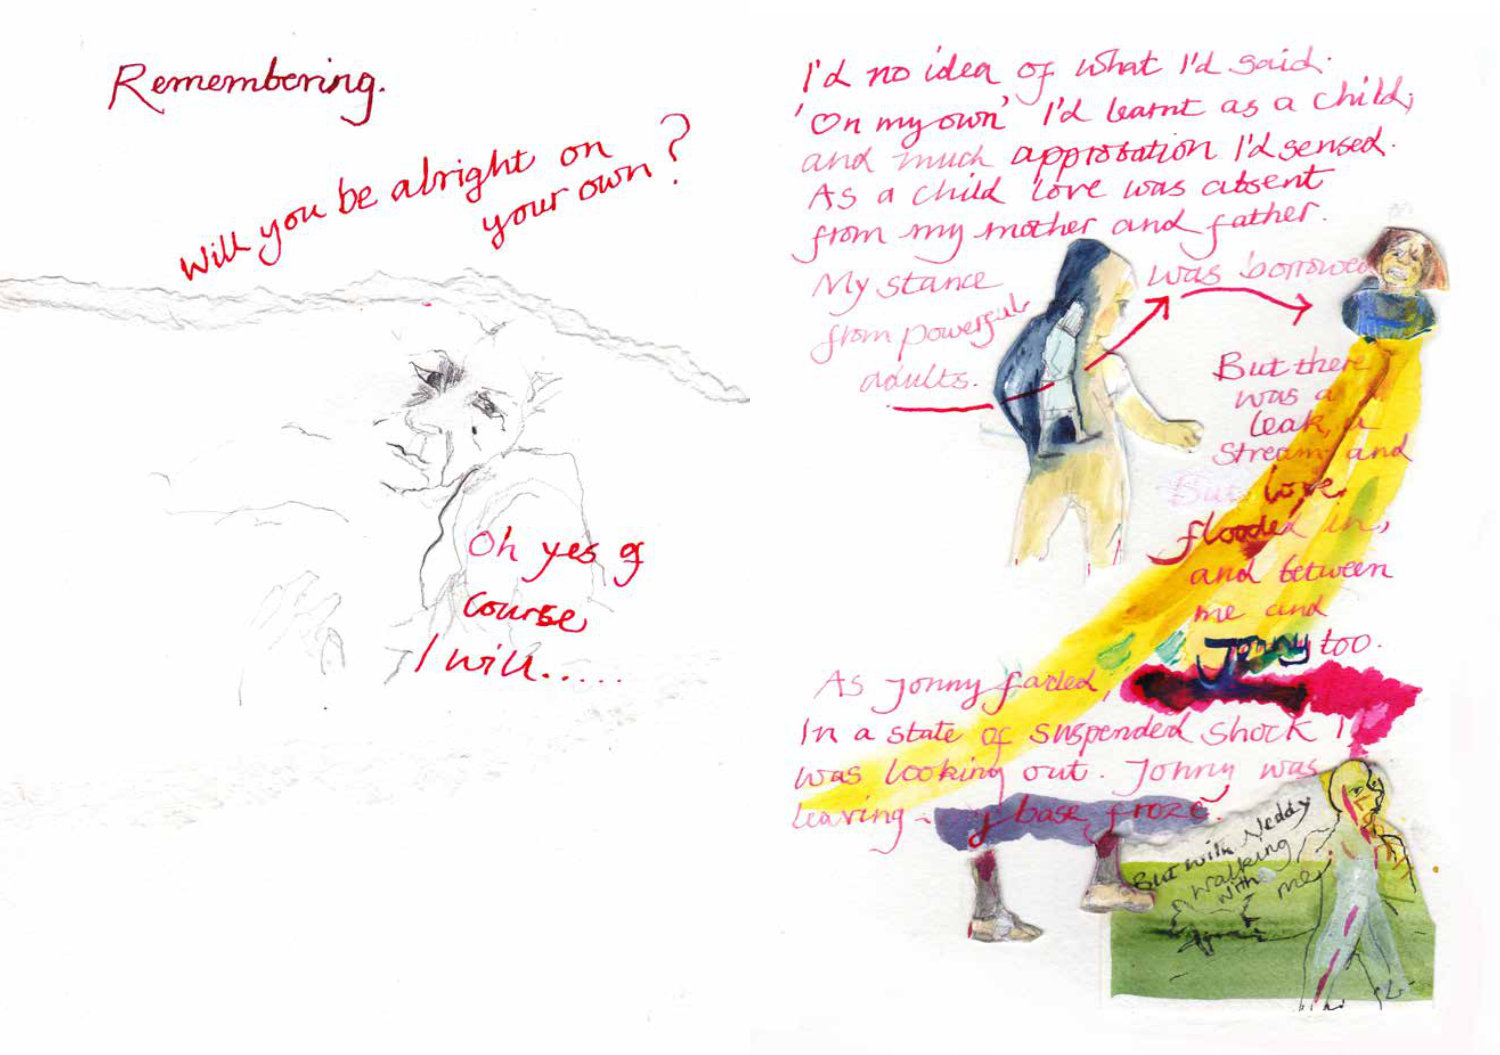 Remembering.
Will you be alright on
your own?
Oh yes of
course
I will.....
I'd no idea of what I'd said.
'On my own' I'd learnt as a child;
and much approbation I'd sensed.
As a child love was absent
from my mother and father.
My stance was borrowed
from powerful
adults.
But there
was a
leak, a
stream and
But love
flooded in,
and between
me and
Jonny too.
As Jonny faded,
In a state of suspended shock I
was looking out. Jonny was
leaving - my base froze.
But with Neddy
walking
with me